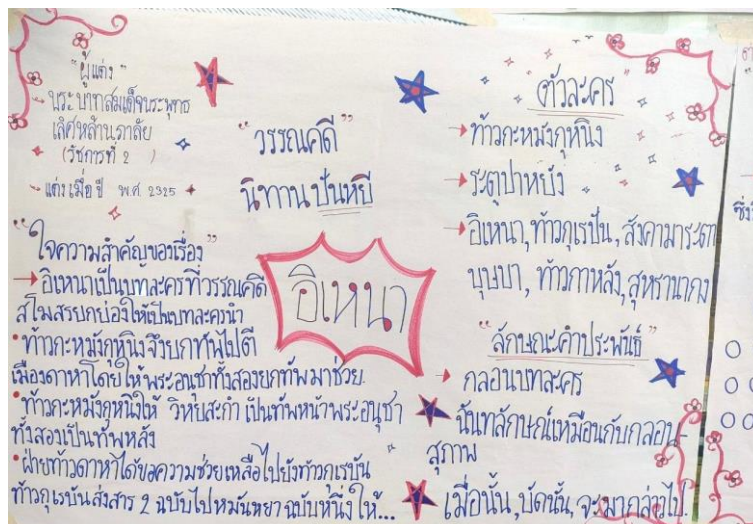 "ผู้แต่ง"
พระบาทสมเด็จพระพุทธ
เลิศหล้านภาลัย
(รัชการที่ 2 )
แต่งเมื่อปี พ.ศ. 2325
"วรรณคดี"
นิทานปันหยี
อิเหนา
"ใจความสำคัญของเรื่อง"
→ อิเหนาเป็นบทละครที่วรรณคดี
สโมสรยกย่องให้เป็นบทละครนำ
• ท้าวกะหมังกุหนิงจึงยกทัพไปตี
เมืองดาหาโดยให้พระอนุชาทั้งสองยกทัพมาช่วย.
• ท้าวกะหมังกุหนิงให้ วิหยสะกำ เป็นทัพหน้าพระอนุชา
ทั้งสองเป็นทัพหลัง
• ฝ่ายท้าวดาหาได้ขอความช่วยเหลือไปยังท้าวกุเรบัน
ท้าวกุเรบันส่งสาร 2 ฉบับไปหมันหยาฉบับหนึ่งให้...
ตัวละคร
→ ท้าวกะหมังกุหนิง
→ ระตูปาหยัง
→ อิเหนา, ท้าวกุเรปัน, สังคามาระตา
บุษบา, ท้าวกาหลัง, สุหรานากง
"ลักษณะคำประพันธ์"
→ กลอนบทละคร
ฉันทลักษณ์เหมือนกับกลอน-
สุภาพ
เมื่อนั้น, บัดนั้น, จะมากล่าวไป.